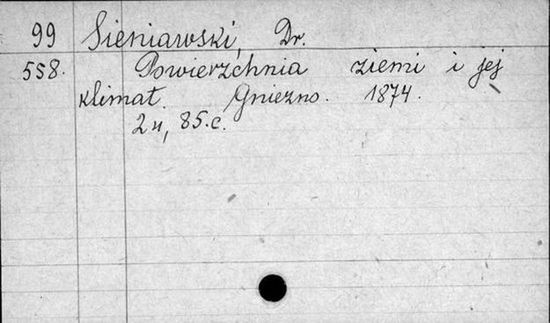 99 Sieniawski, Dr.
558. Powierzchnia ziemi i jej
klimat. Gniezno. 1874.
2 н, 85. с.